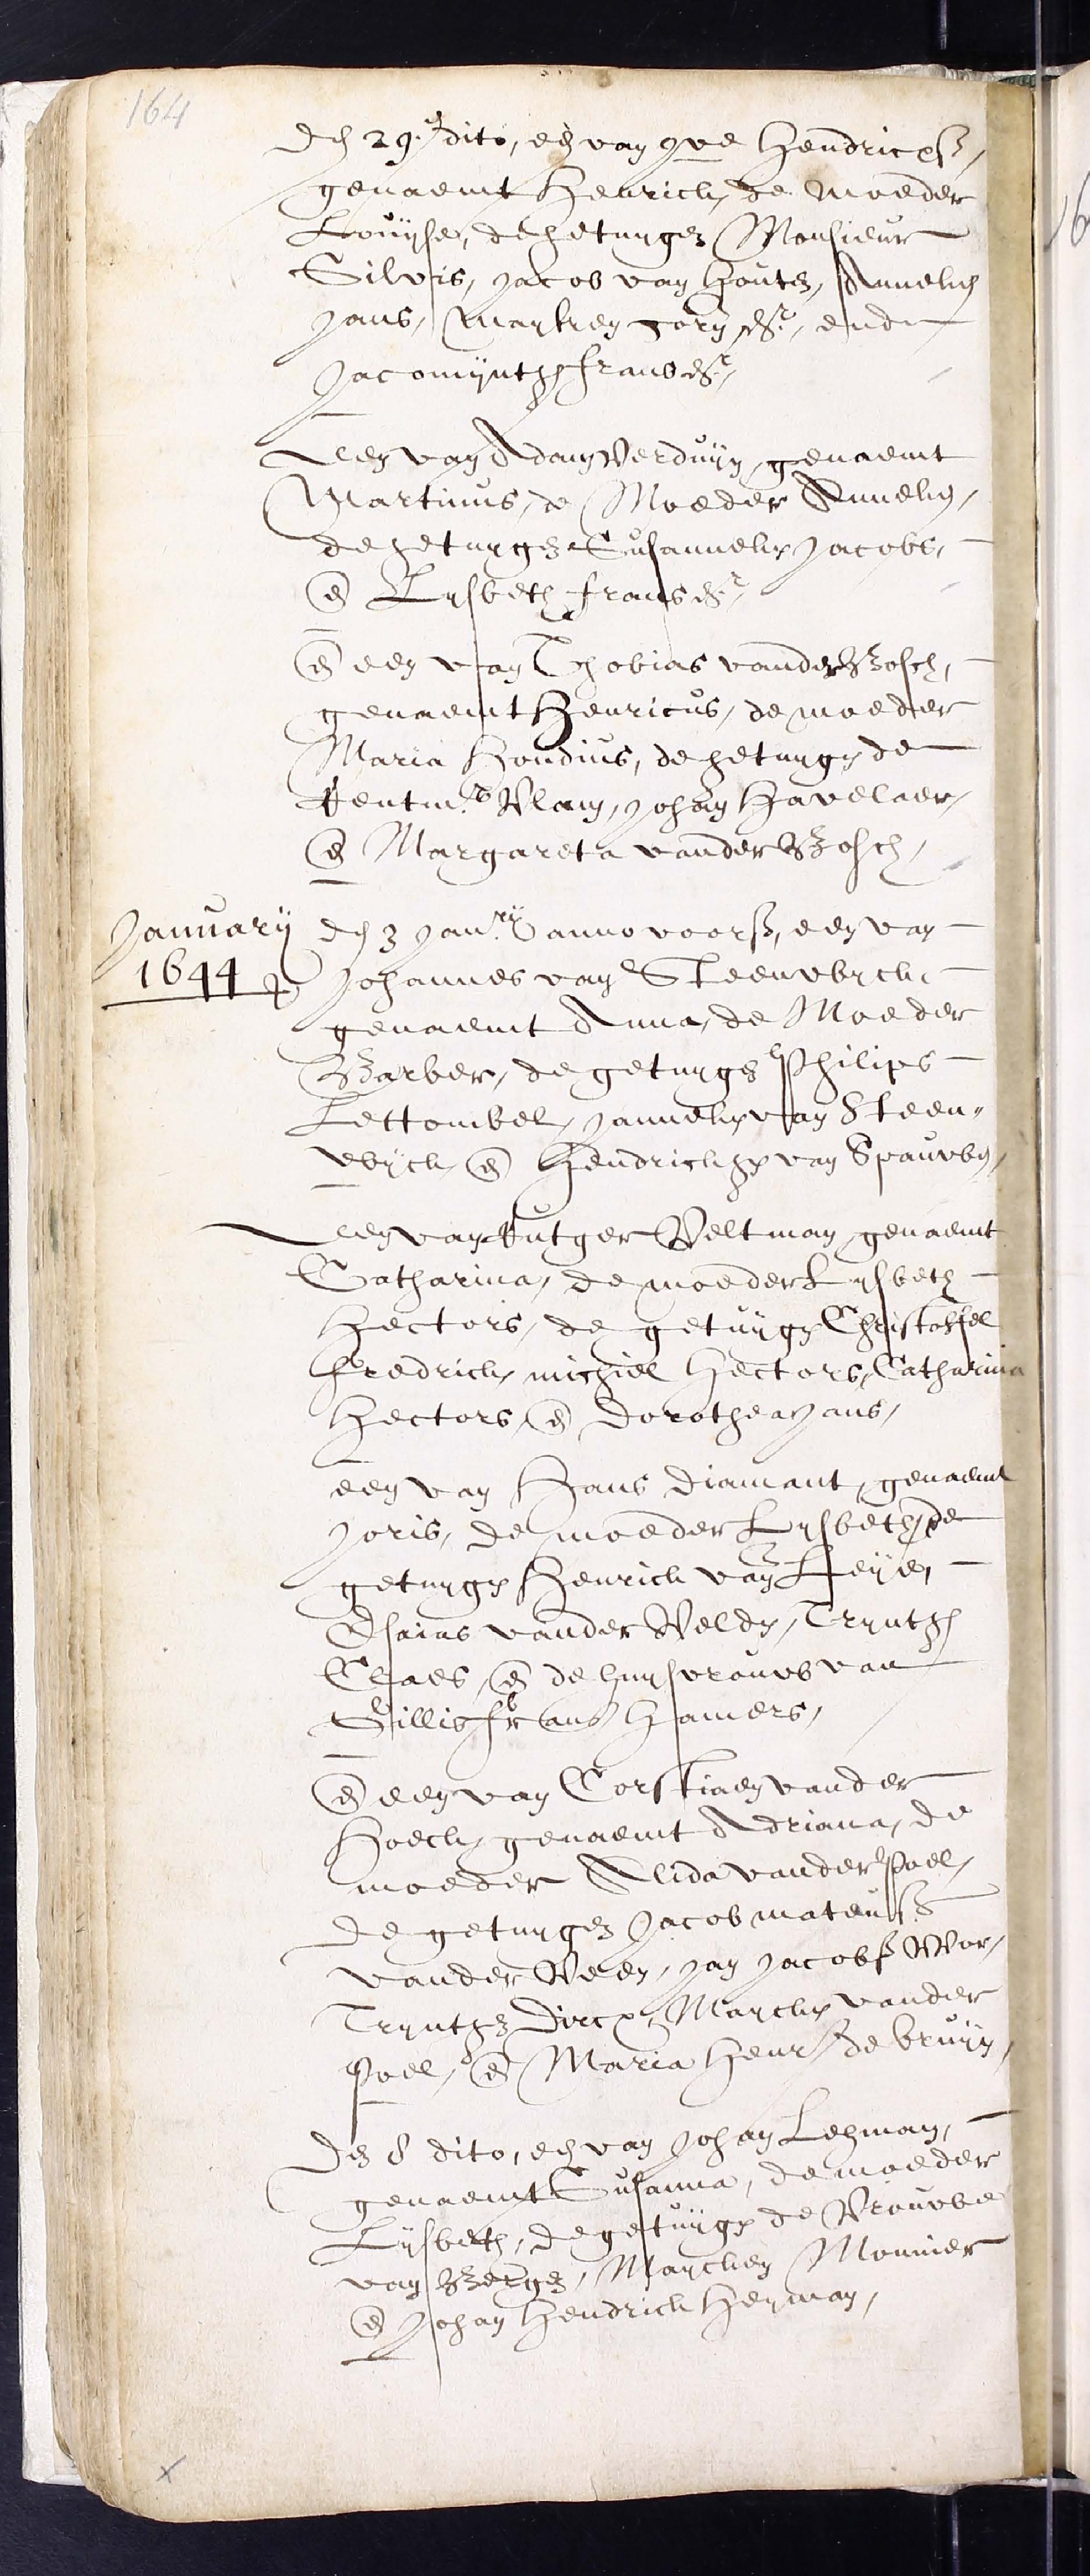 164
den 29.e dito, een van Hendricxsz,
genaemt Henrick, de Moeder
Louijse, de getuygen Monsieur
Silvis, Jacob van Houten, Anneken
Jans, Mayken Joris dr., ende
Jacomijntgen frans dr.,
een van Adam Verduijn, genaemt
Martinus, de Moeder Anneken,
de getuygen Susanneken Jacobs,
en Lysbeth frans dr.,
en een van Thobias vander Bosch,
genaemt Henricus, de moeder
Maria Hondius, de getuygen de
Rentmr. Vlam, Johan Havelaer,
en Margareta vander Bosch,
January
1644
den 3 Janry. anno voorsz, een van
Johannes van Steenwyck,
genaemt Anna, de Moeder
Barber, de getuygen Philips
Lettombel, Janneken van Steen„
wyck, en Hendrickgen van Spauwen,
een van Rutger Veltman, genaemt
Catharina, de moeder Lysbeth
Hectors, de getuygen Christoffel
fredrick, michiel Hectors, Catharina
Hectors, en Dorothea Jans,
een van Hans Diamant, genaemt
Joris, de moeder Lysbeth, de
getuygen Henrick van Leije,
Esaias vander Velden, Tryntgen
Claes, en de huysvrouw van
Gillis frans Hamers,
en een van Corstiaen vander
Hoeck, genaemt Adriana, de
moeder Alida vander Poel,
de getuygen Jacob mateusz
vander Veen, Jan Jacobsz Wor,
Tryntgen Dircx, Maycken vander
Poel, en Maria Henr. de bruijn,
den 8 dito, een van Johan Lehman,
genaemt Susanna, de moeder
Lysbeth, de getuygen de Vrouwe
van Bergen, Maycken Monnier
en Johan Hendrick Heyman,
x